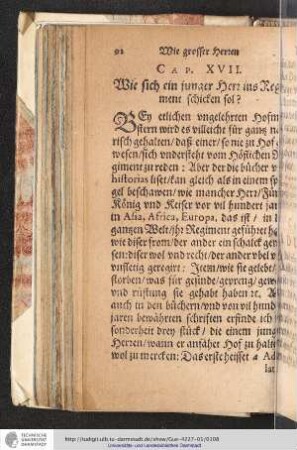 92 Wie grosser Herren
CAP. XVII.
Wie sich ein junger Herr ins Reg
ment schicken sol?
BEy etlichen ungelehrten Hofm
eistern wird es villeicht für gantz n
risch gehalten / daß einer / so nie zu Hof
wesen / sich understeht vom Höflichen
giment zu reden: Aber der die bücher v
historias liset / kan gleich als in einem sp
gel beschawen / wie mancher Herr / Für
König und Keiser vor vil hundert jar
in Asia, Africa, Europa, das ist / in
gantzen Welt / ihr Regiment geführet h
wie diser from / der ander ein schalck gew
sen: diser wol und recht / der ander übel v
unfletig geregirt: Item / wie sie gelebt /
storben / was für gesünde / gepreng / gew
und rüstung sie gehabt haben rc. A
auch in den büchern / und von vil hund
jaren bewährten schriften erfinde ich
sonderheit drey stück / die einem jung
Herren / wann er anfäher Hof zu halt
wol zu mercken: Das erste heisset Ad
lat
TECHNISCHE
UNIVERSITÄT
DARMSTADT
http://tudigit.ulb.tu-darmstadt.de/show/Gue-4227-01/0108
Universitäts- und Landesbibliothek Darmstadt